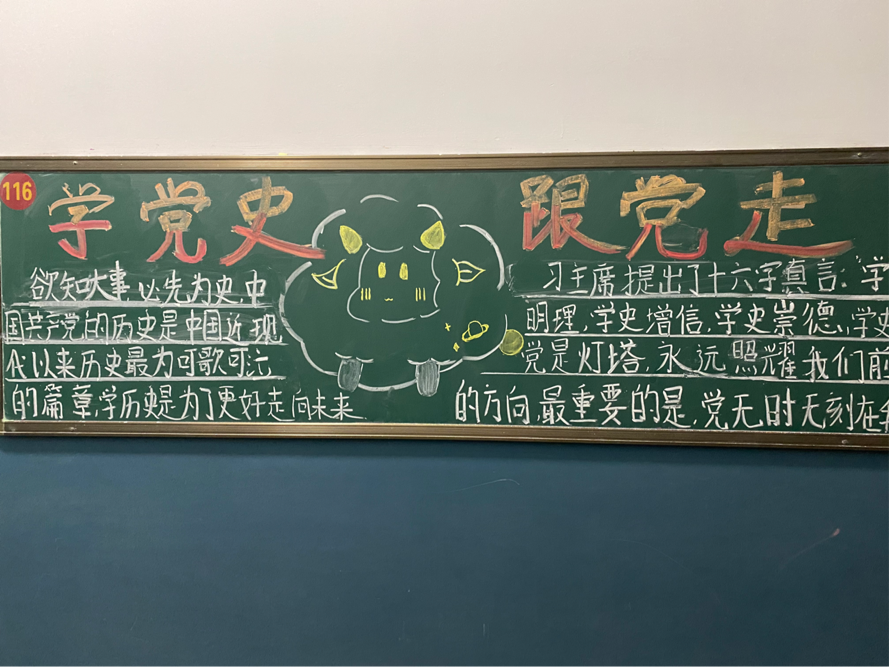 116
学党史 跟党走
欲知大事,必先为史,中
国共产党的历史是中国近现
代以来历史最为可歌可泣
的篇章,学历史是为了更好走向未来
习主席提出了十六字真言:学
明理,学史增信,学史崇德,学史
党是灯塔,永远照耀我们前
的方向,最重要的是,党无时无刻在